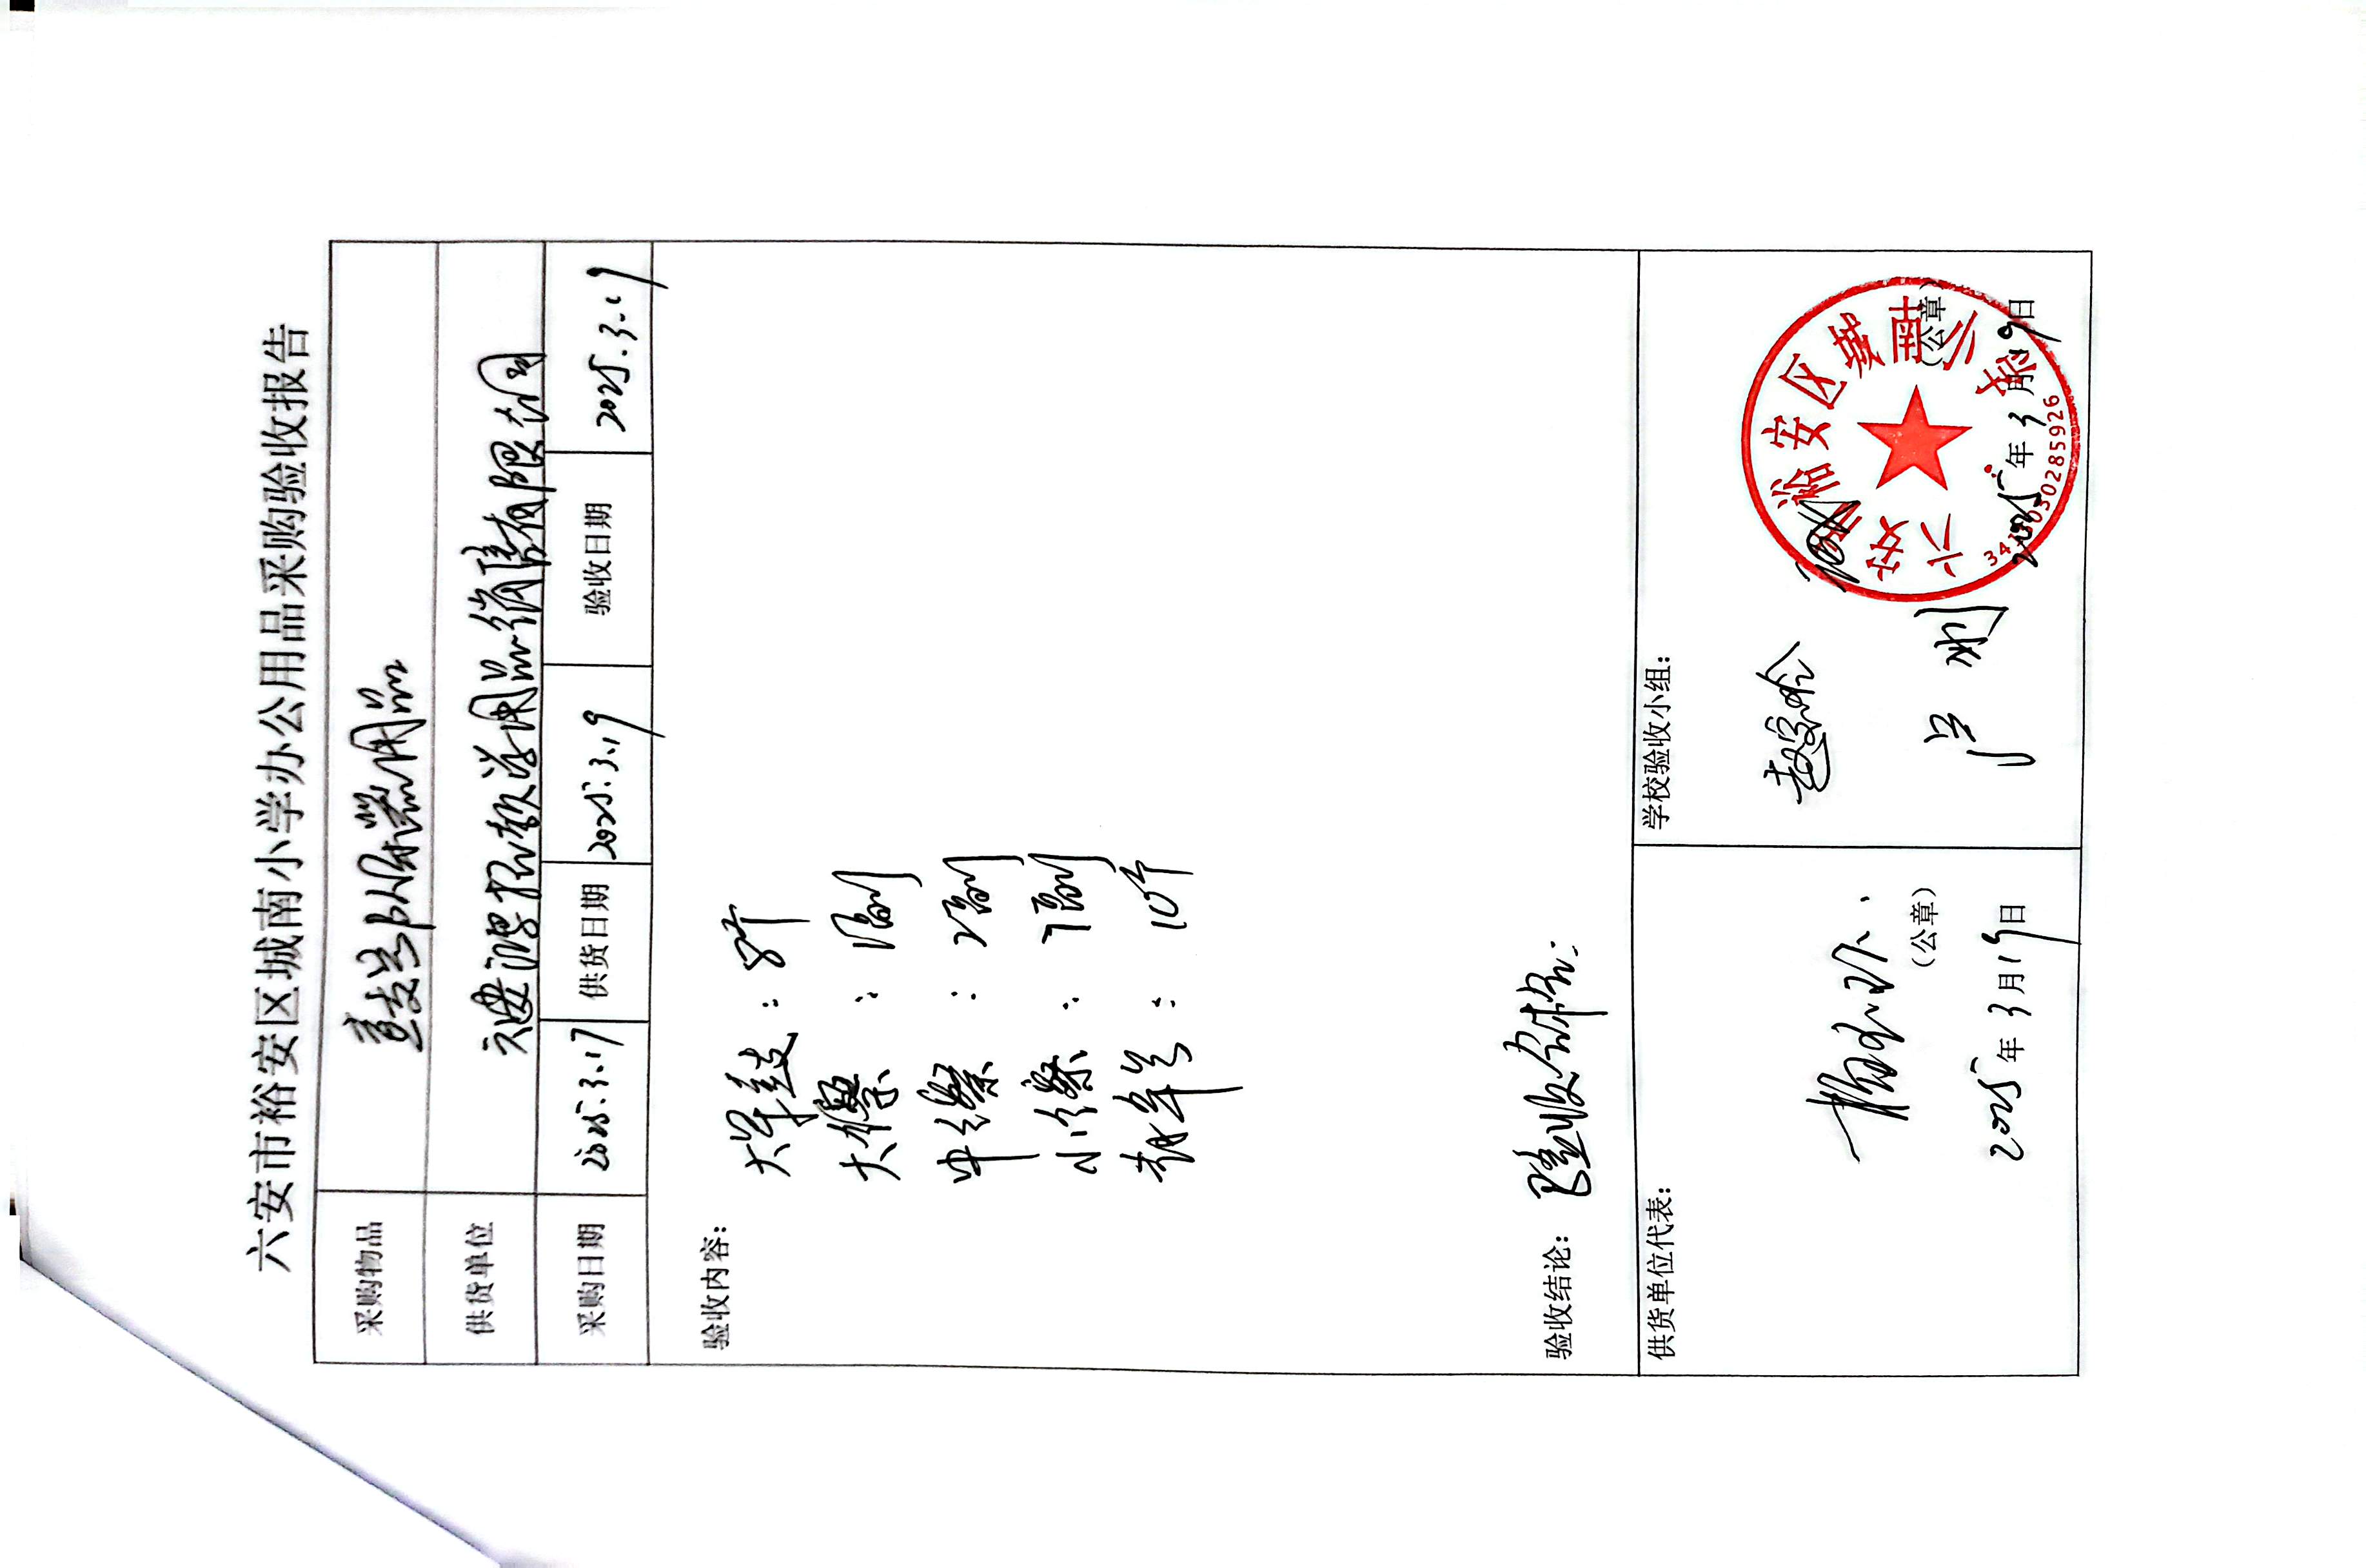 六安市裕安区城南小学办公用品采购验收报告
采购物品
供货单位 六安 教学用品销售有限公司
采购日期 2025.3.17 供货日期 2025.3.19 验收日期 2025.3.19
验收内容：
大军鼓： 8个
大镲： 1副
中镲： 2副
小镲： 7副
10个
验收结论： 验收合格.
供货单位代表：
（公章）
2025年3月19日
学校验收小组：
（公章）
2025年3月19日
六安市裕安区城南小学
3415030285926